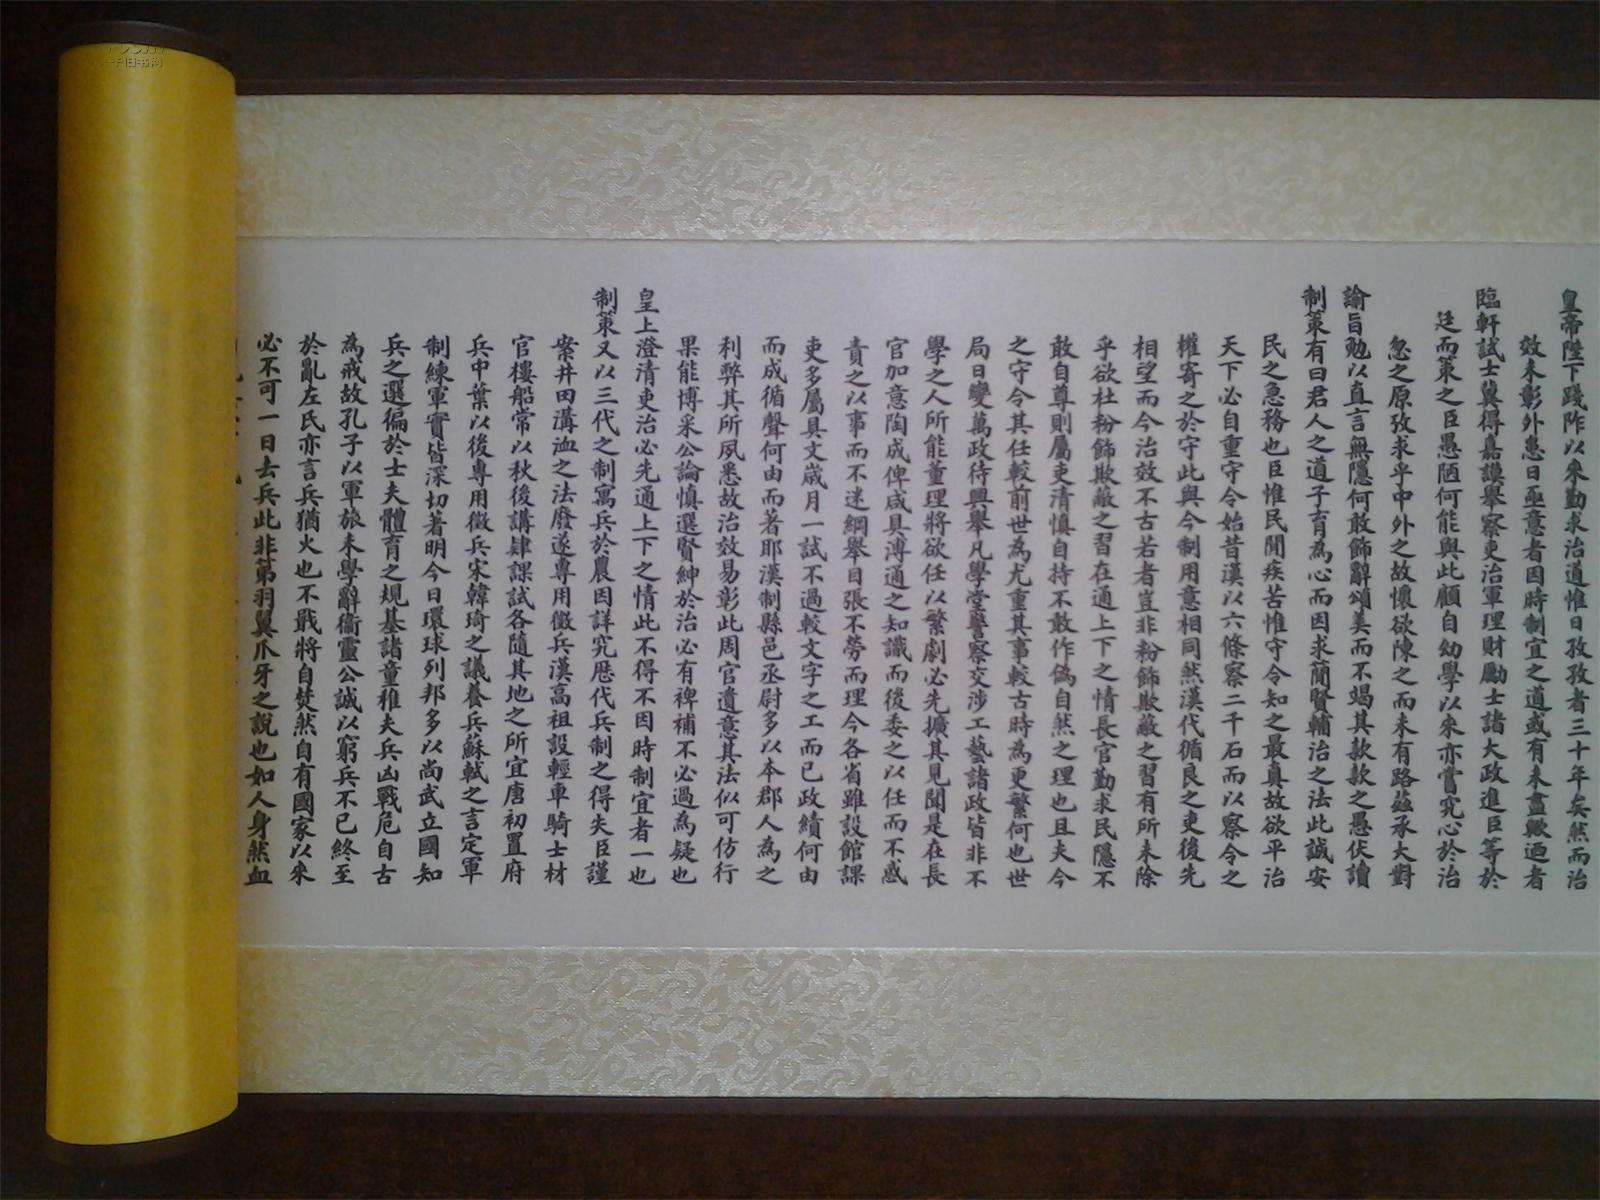 皇帝陛下踐阼以來勤求治道惟日孜孜者三十年矣然而治
效未彰外患日亟意者因時制宜之道或有未盡歟迺者
臨軒試士冀得嘉謨舉察吏治軍理財勵士諸大政進臣等於
廷而策之臣愚陋何能與此顧自幼學以來亦嘗究心於治
忽之原攷求乎中外之故懷欲陳之而未有路茲承大對
諭旨勉以直言無隱何敢飾辭頌美而不竭其款款之愚伏讀
制策有曰君人之道子育為心而因求簡賢輔治之法此誠安
民之急務也臣惟民閒疾苦惟守令知之最真故欲平治
天下必自重守令始昔漢以六條察二千石而以察令之
權寄之於守此與今制用意相同然漢代循良之吏後先
相望而今治效不古若者豈非粉飾欺蔽之習有所未除
乎欲杜粉飾欺蔽之習在通上下之情長官勤求民隱不
敢自尊則屬吏清慎自持不敢作偽自然之理也且夫今
之守令其任較前世為尤重其事較古時為更繁何也世
局日變萬政待興舉凡學堂警察交涉工藝諸政皆非不
學之人所能董理將欲任以繁劇必先擴其見聞是在長
官加意陶成俾咸具溥通之知識而後委之以任而不惑
責之以事而不迷綱舉目張不勞而理今各省雖設館課
吏多屬具文歲月一試不過較文字之工而已政績何由
而成循聲何由而著耶漢制縣邑丞尉多以本郡人為之
利弊其所夙悉故治效易彰此周官遺意其法似可仿行
果能博采公論慎選賢紳於治必有裨補不必過為疑也
皇上澄清吏治必先通上下之情此不得不因時制宜者一也
制策又以三代之制寓兵於農因詳究歷代兵制之得失臣謹
案井田溝洫之法廢遂專用徵兵漢高祖設輕車騎士材
官樓船常以秋後講肄課試各隨其地之所宜唐初置府
兵中葉以後專用徵兵宋韓琦之議養兵蘇軾之言定軍
制練軍實皆深切著明今日環球列邦多以尚武立國知
兵之選徧於士夫體育之規基諸童稚夫兵凶戰危自古
為戒故孔子以軍旅未學辭衞靈公誠以窮兵不已終至
於亂左氏亦言兵猶火也不戢將自焚然自有國家以來
必不可一日去兵此非第羽翼爪牙之說也如人身然血